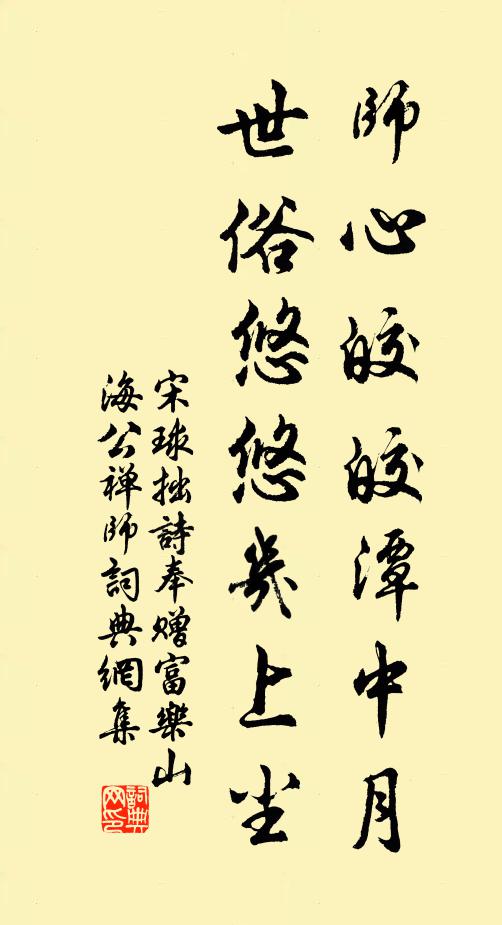 師心皎皎潭中月
世俗悠悠幾上尘
宋球拙詩奉赠富樂山
海公禅師詞典網集
詞典网印